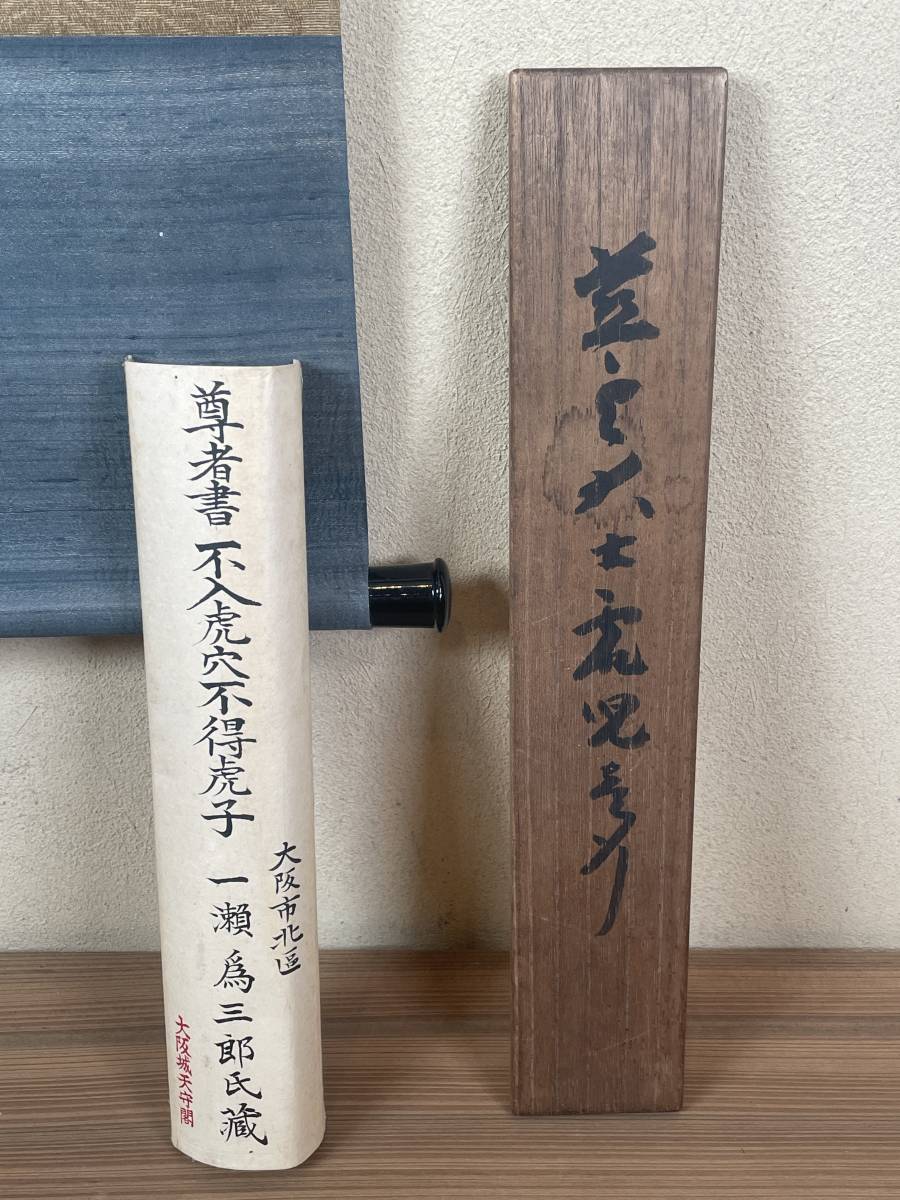 大阪市北區
尊者書 不入虎穴不得虎子 一瀨爲三郎氏藏
大阪城天守閣
大士虎児